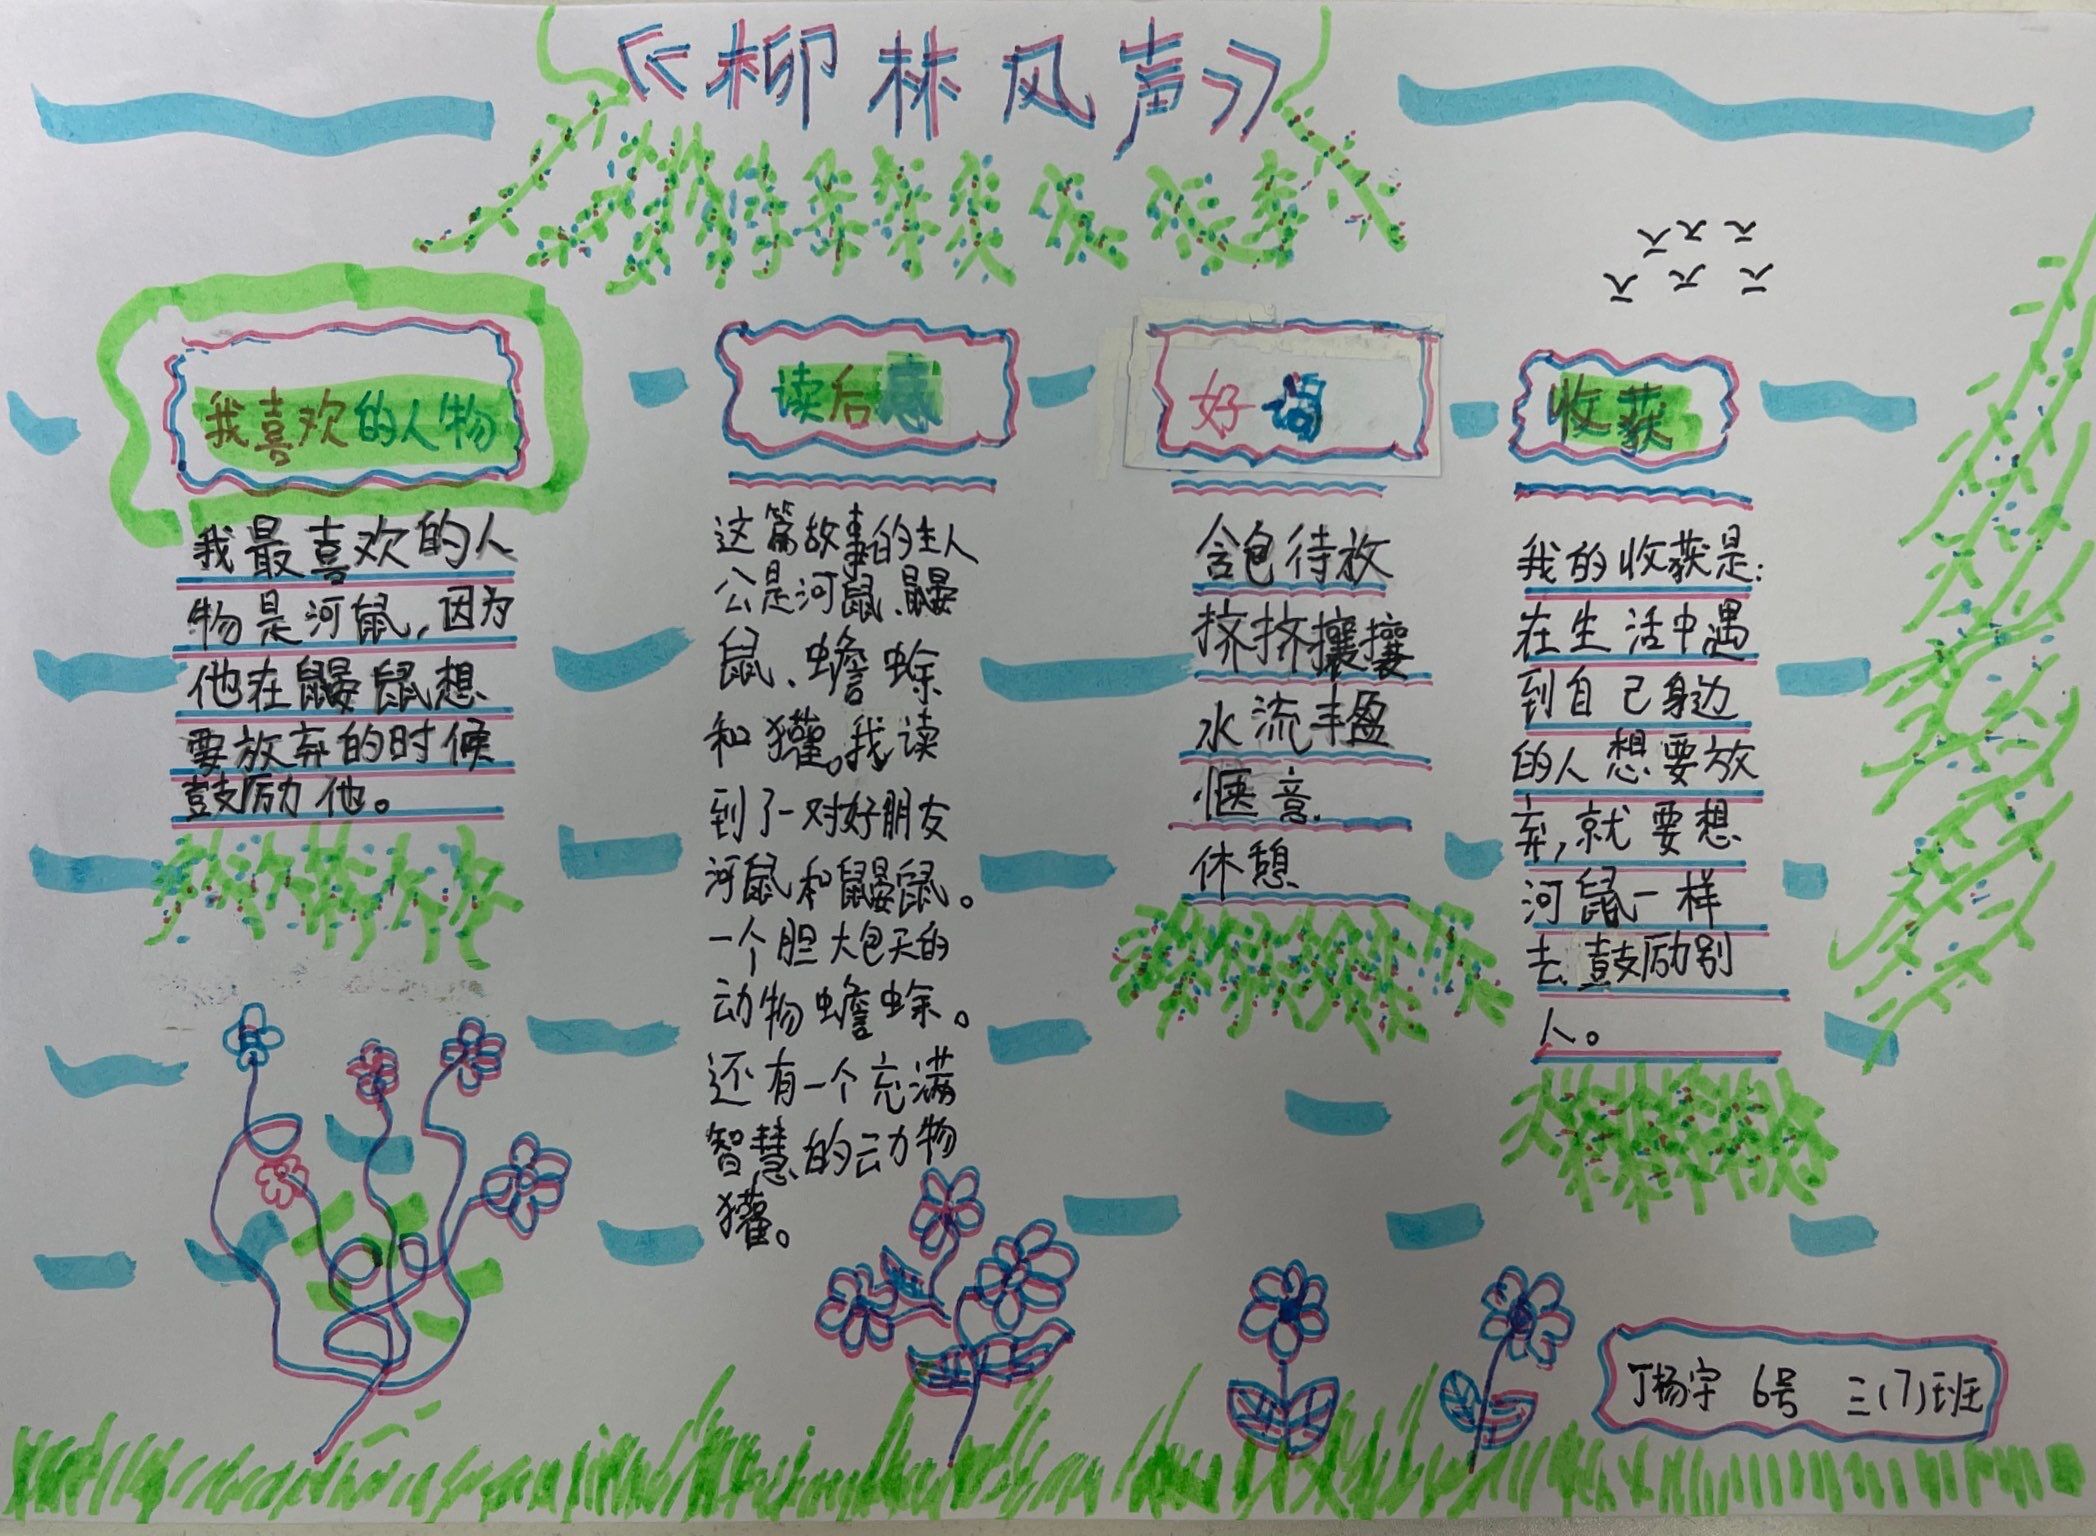 《柳林风声》
我喜欢的人物
我最喜欢的人
物是河鼠,因为
他在鼹鼠想
要放弃的时候
鼓励他。
读后感
这篇故事的主人
公是河鼠、鼹
鼠、蟾蜍
和獾。我读
到了一对好朋友
河鼠和鼹鼠。
一个胆大包天的
动物蟾蜍。
还有一个充满
智慧的动物
獾。
好词
含包待放
挤挤攘攘
水流丰盈
惬意
休憩
收获
我的收获是:
在生活中遇
到自己身边
的人想要放
弃,就要想
河鼠一样
去鼓励别
人。
丁杨宇 6号 三(7)班